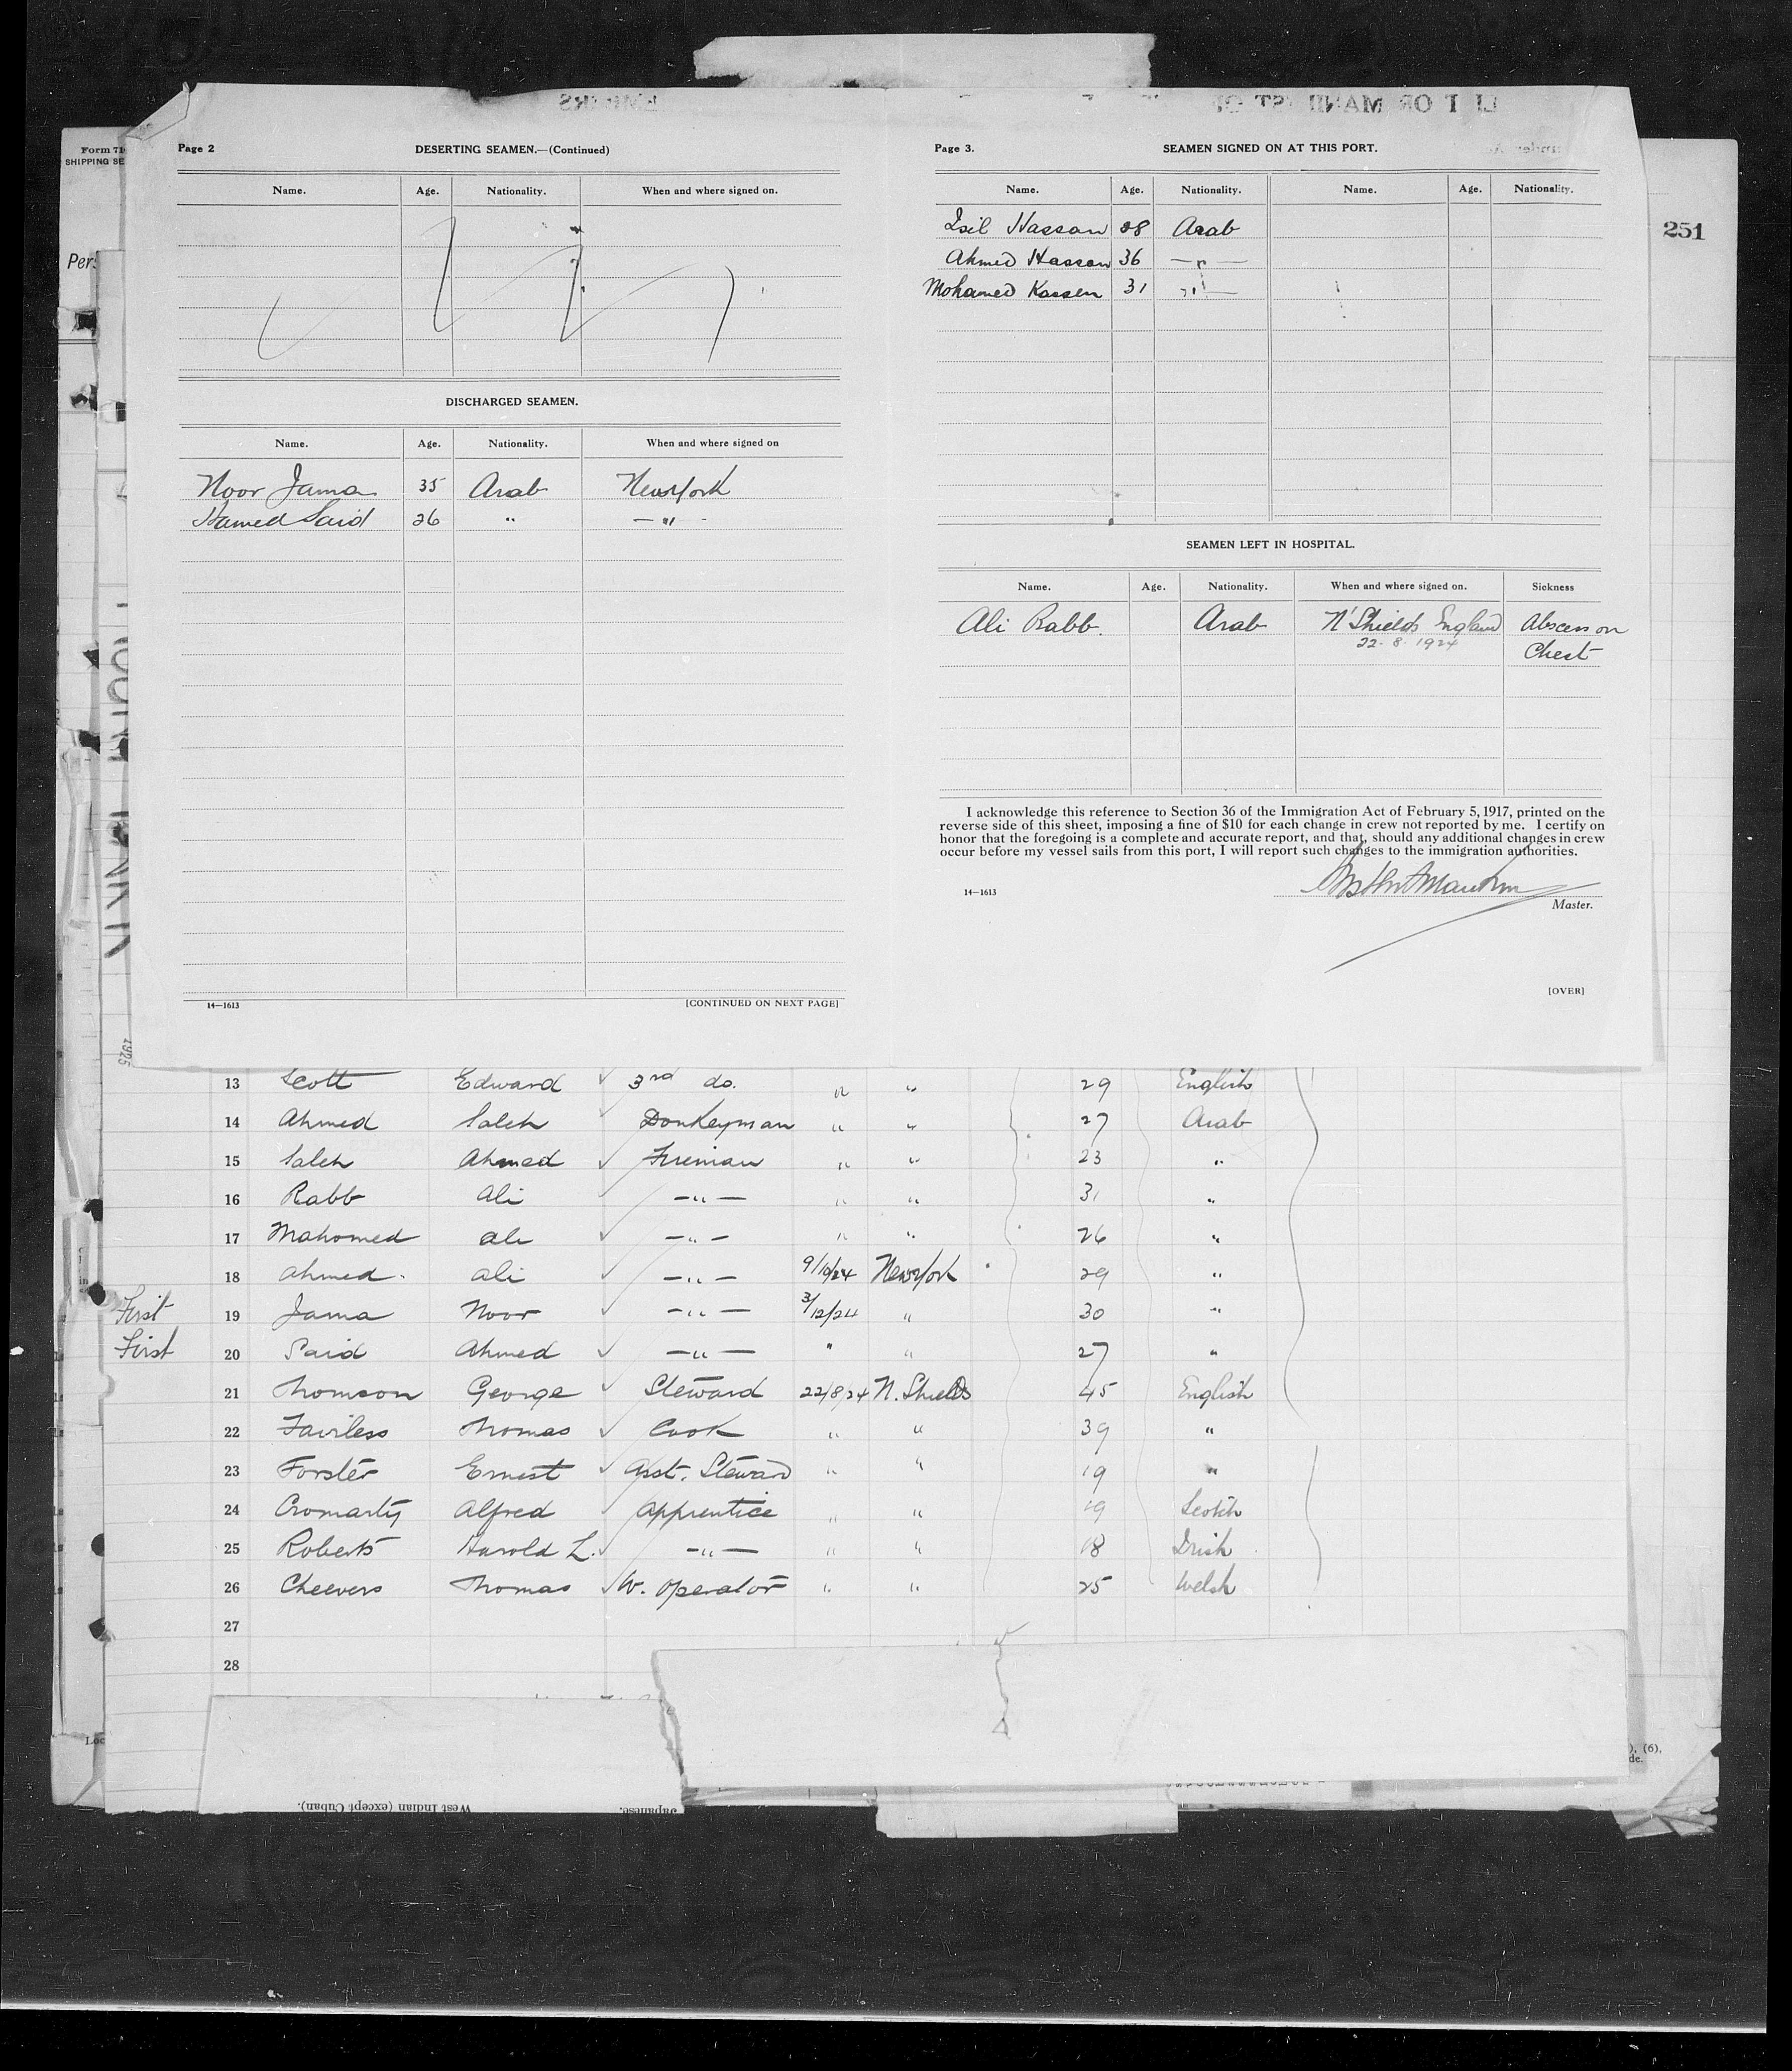 Form 71
SHIPPING SE
Pers
251
Page 2 DESERTING SEAMEN.—(Continued)
Name. Age. Nationality. When and where signed on.
DISCHARGED SEAMEN.
Name. Age. Nationality. When and where signed on
Noor Jama 35 Arab New York
Hamed Said 26 " —"-
14—1613 [CONTINUED ON NEXT PAGE]
Page 3. SEAMEN SIGNED ON AT THIS PORT.
Name. Age. Nationality. Name. Age. Nationality.
Hassan 28 Arab
Ahmed Hassan 36 —"—
Mohamed Kassen 31 "—
SEAMEN LEFT IN HOSPITAL.
Name. Age. Nationality. When and where signed on. Sickness
Ali Rabb. Arab N'Shields England Abscess on
22-8-1924 Chest
I acknowledge this reference to Section 36 of the Immigration Act of February 5, 1917, printed on the
reverse side of this sheet, imposing a fine of $10 for each change in crew not reported by me. I certify on
honor that the foregoing is a complete and accurate report, and that, should any additional changes in crew
occur before my vessel sails from this port, I will report such changes to the immigration authorities.
14—1613
Master.
[OVER]
1925
13 Scott Edward 3rd do. " " 29 English
14 Ahmed Saleh Donkeyman " " 27 Arab
15 Saleh Ahmed Fireman " " 23 "
16 Rabb Ali —"— " " 31 "
17 Mahomed Ali —"— " " 26 "
18 Ahmed. Ali —"— 9/10/24 New York 29 "
First 19 Jama Noor —"— 3/12/24 " 30 "
First 20 Said Ahmed —"— " " 27 "
21 Thomson George Steward 22/8/24 N. Shields 45 English
22 Fairless Thomas Cook " " 39 "
23 Forster Ernest Asst. Steward " " 19 "
24 Cromarty Alfred Apprentice " " 19 Scotch
25 Roberts Harold L. —"— " " 18 Irish
26 Cheevers Thomas W. Operator " " 25 Welsh
27
28
Loc
), (6),
de.
West Indian (except Cuban).
Japanese.